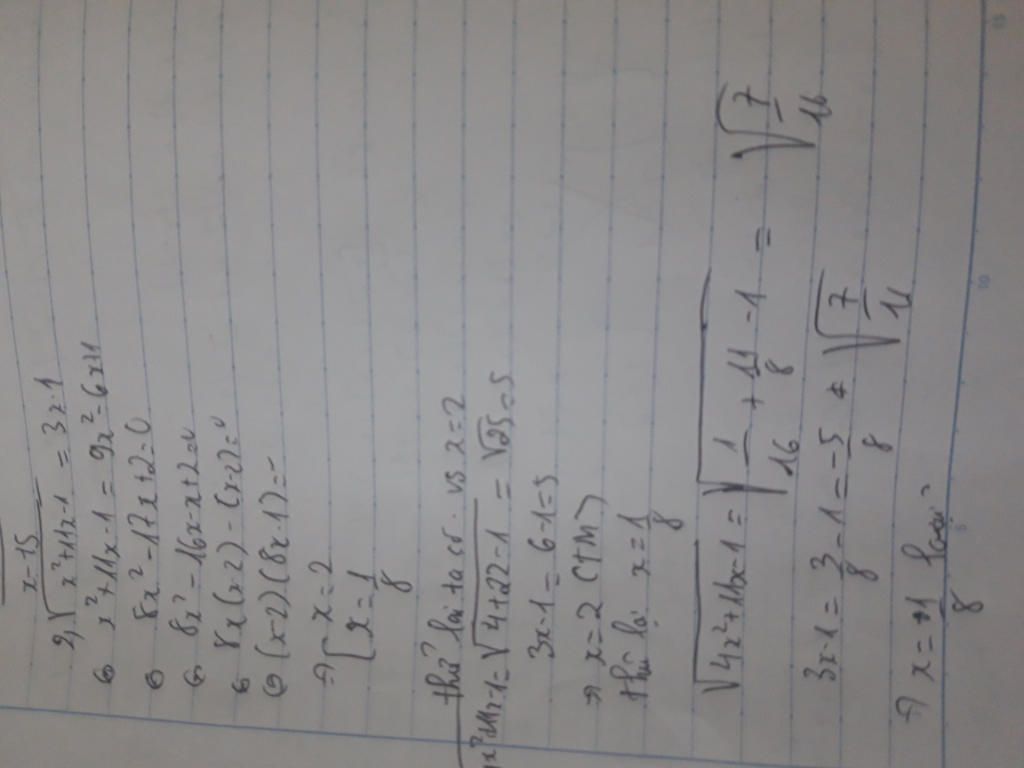 x-15
2, √x²+11x-1 = 3x-1
⇔ x²+11x-1 = 9x²-6x+1
⇔ 8x²-17x+2=0
⇔ 8x²-16x-x+2=0
⇔ 8x(x-2)-(x-2)=0
⇔ (x-2)(8x-1)=
⇒ [x=2
[x=1/8
thử lại ta có. vs x=2
x²+11x-1=√4+22-1 = √25=5
3x-1=6-1=5
→ x=2 (TM)
thử lại x=1/8
√4x²+11x-1=√1/16+11/8-1 = √7/16
3x-1=3/8-1=-5/8 ≠ √7/16
⇒ x=1/8 loại